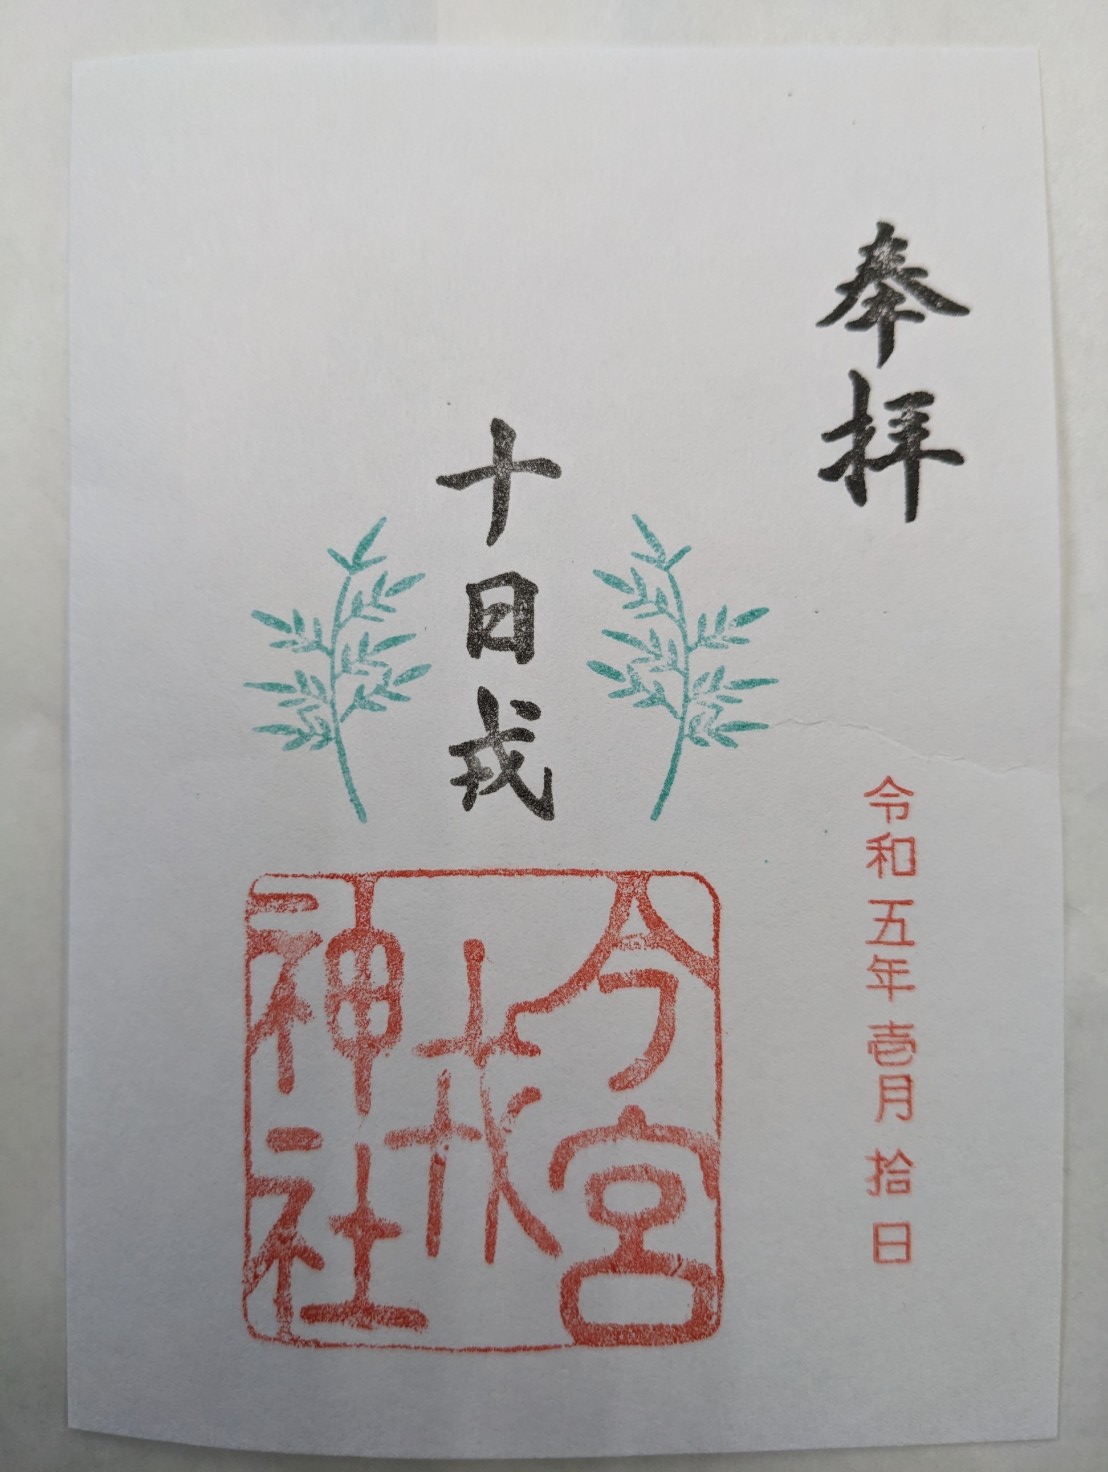 奉拝
十日戎
令和五年壱月拾日
今宮
戎
神社